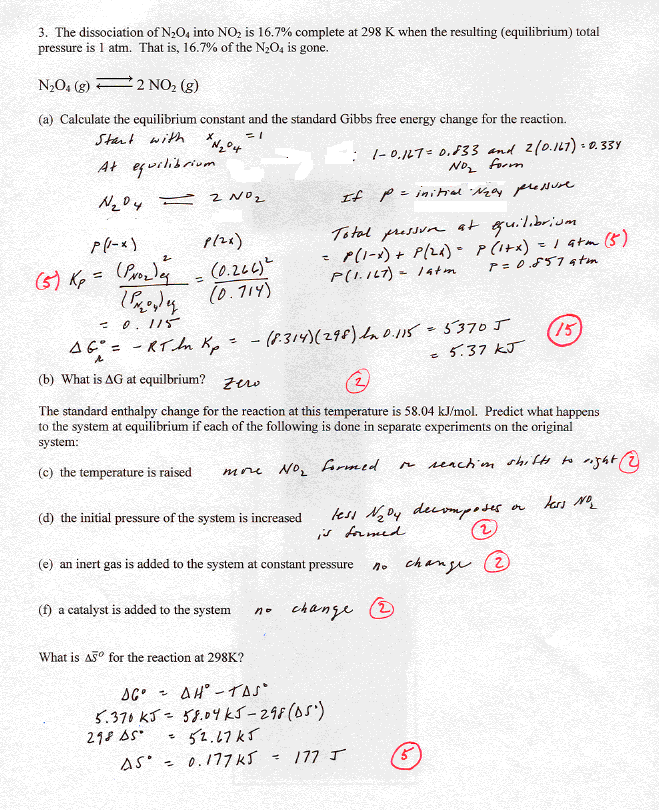 3. The dissociation of N₂O₄ into NO₂ is 16.7% complete at 298 K when the resulting (equilibrium) total
pressure is 1 atm. That is, 16.7% of the N₂O₄ is gone.
N₂O₄ (g) ⇌ 2 NO₂ (g)
(a) Calculate the equilibrium constant and the standard Gibbs free energy change for the reaction.
Start with x_N₂O₄ = 1
At equilibrium : 1-0.167 = 0.833 and 2(0.167) = 0.334
NO₂ form
N₂O₄ ⇌ 2 NO₂ If P = initial N₂O₄ pressure
P(1-x) P(2x) Total pressure at equilibrium
= P(1-x) + P(2x) = P(1+x) = 1 atm (5)
P(1.167) = 1 atm P = 0.857 atm
(5) Kp = (P_NO₂)²eq / (P_N₂O₄)eq = (0.266)² / (0.714)
= 0.115
ΔG°r = -RT ln Kp = -(8.314)(298) ln 0.115 = 5370 J (15)
= 5.37 kJ
(b) What is ΔG at equilbrium? zero (2)
The standard enthalpy change for the reaction at this temperature is 58.04 kJ/mol. Predict what happens
to the system at equilibrium if each of the following is done in separate experiments on the original
system:
(c) the temperature is raised more NO₂ formed or reaction shifts to right (2)
(d) the initial pressure of the system is increased less N₂O₄ decomposes or less NO₂
is formed (2)
(e) an inert gas is added to the system at constant pressure no change (2)
(f) a catalyst is added to the system no change (2)
What is ΔS̄° for the reaction at 298K?
ΔG° = ΔH° - TΔS°
5.370 kJ = 58.04 kJ - 298(ΔS°)
298 ΔS° = 52.67 kJ
ΔS° = 0.177 kJ = 177 J (5)